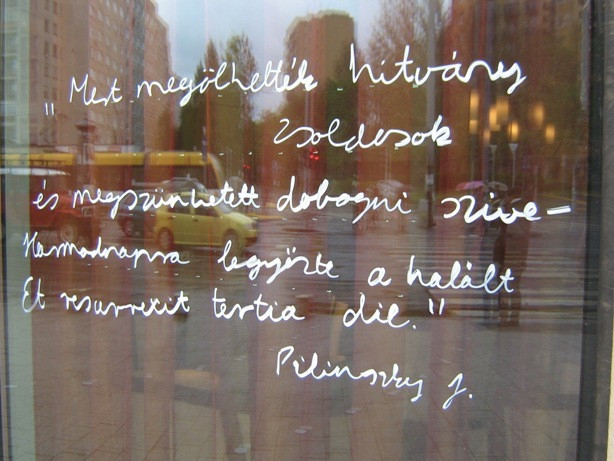 „Mert megölhették hitvány
zsoldosok
és megszünhetett dobogni szive –
Harmadnapra legyőzte a halált
Et resurrexit tertia die."
Pilinszky J.